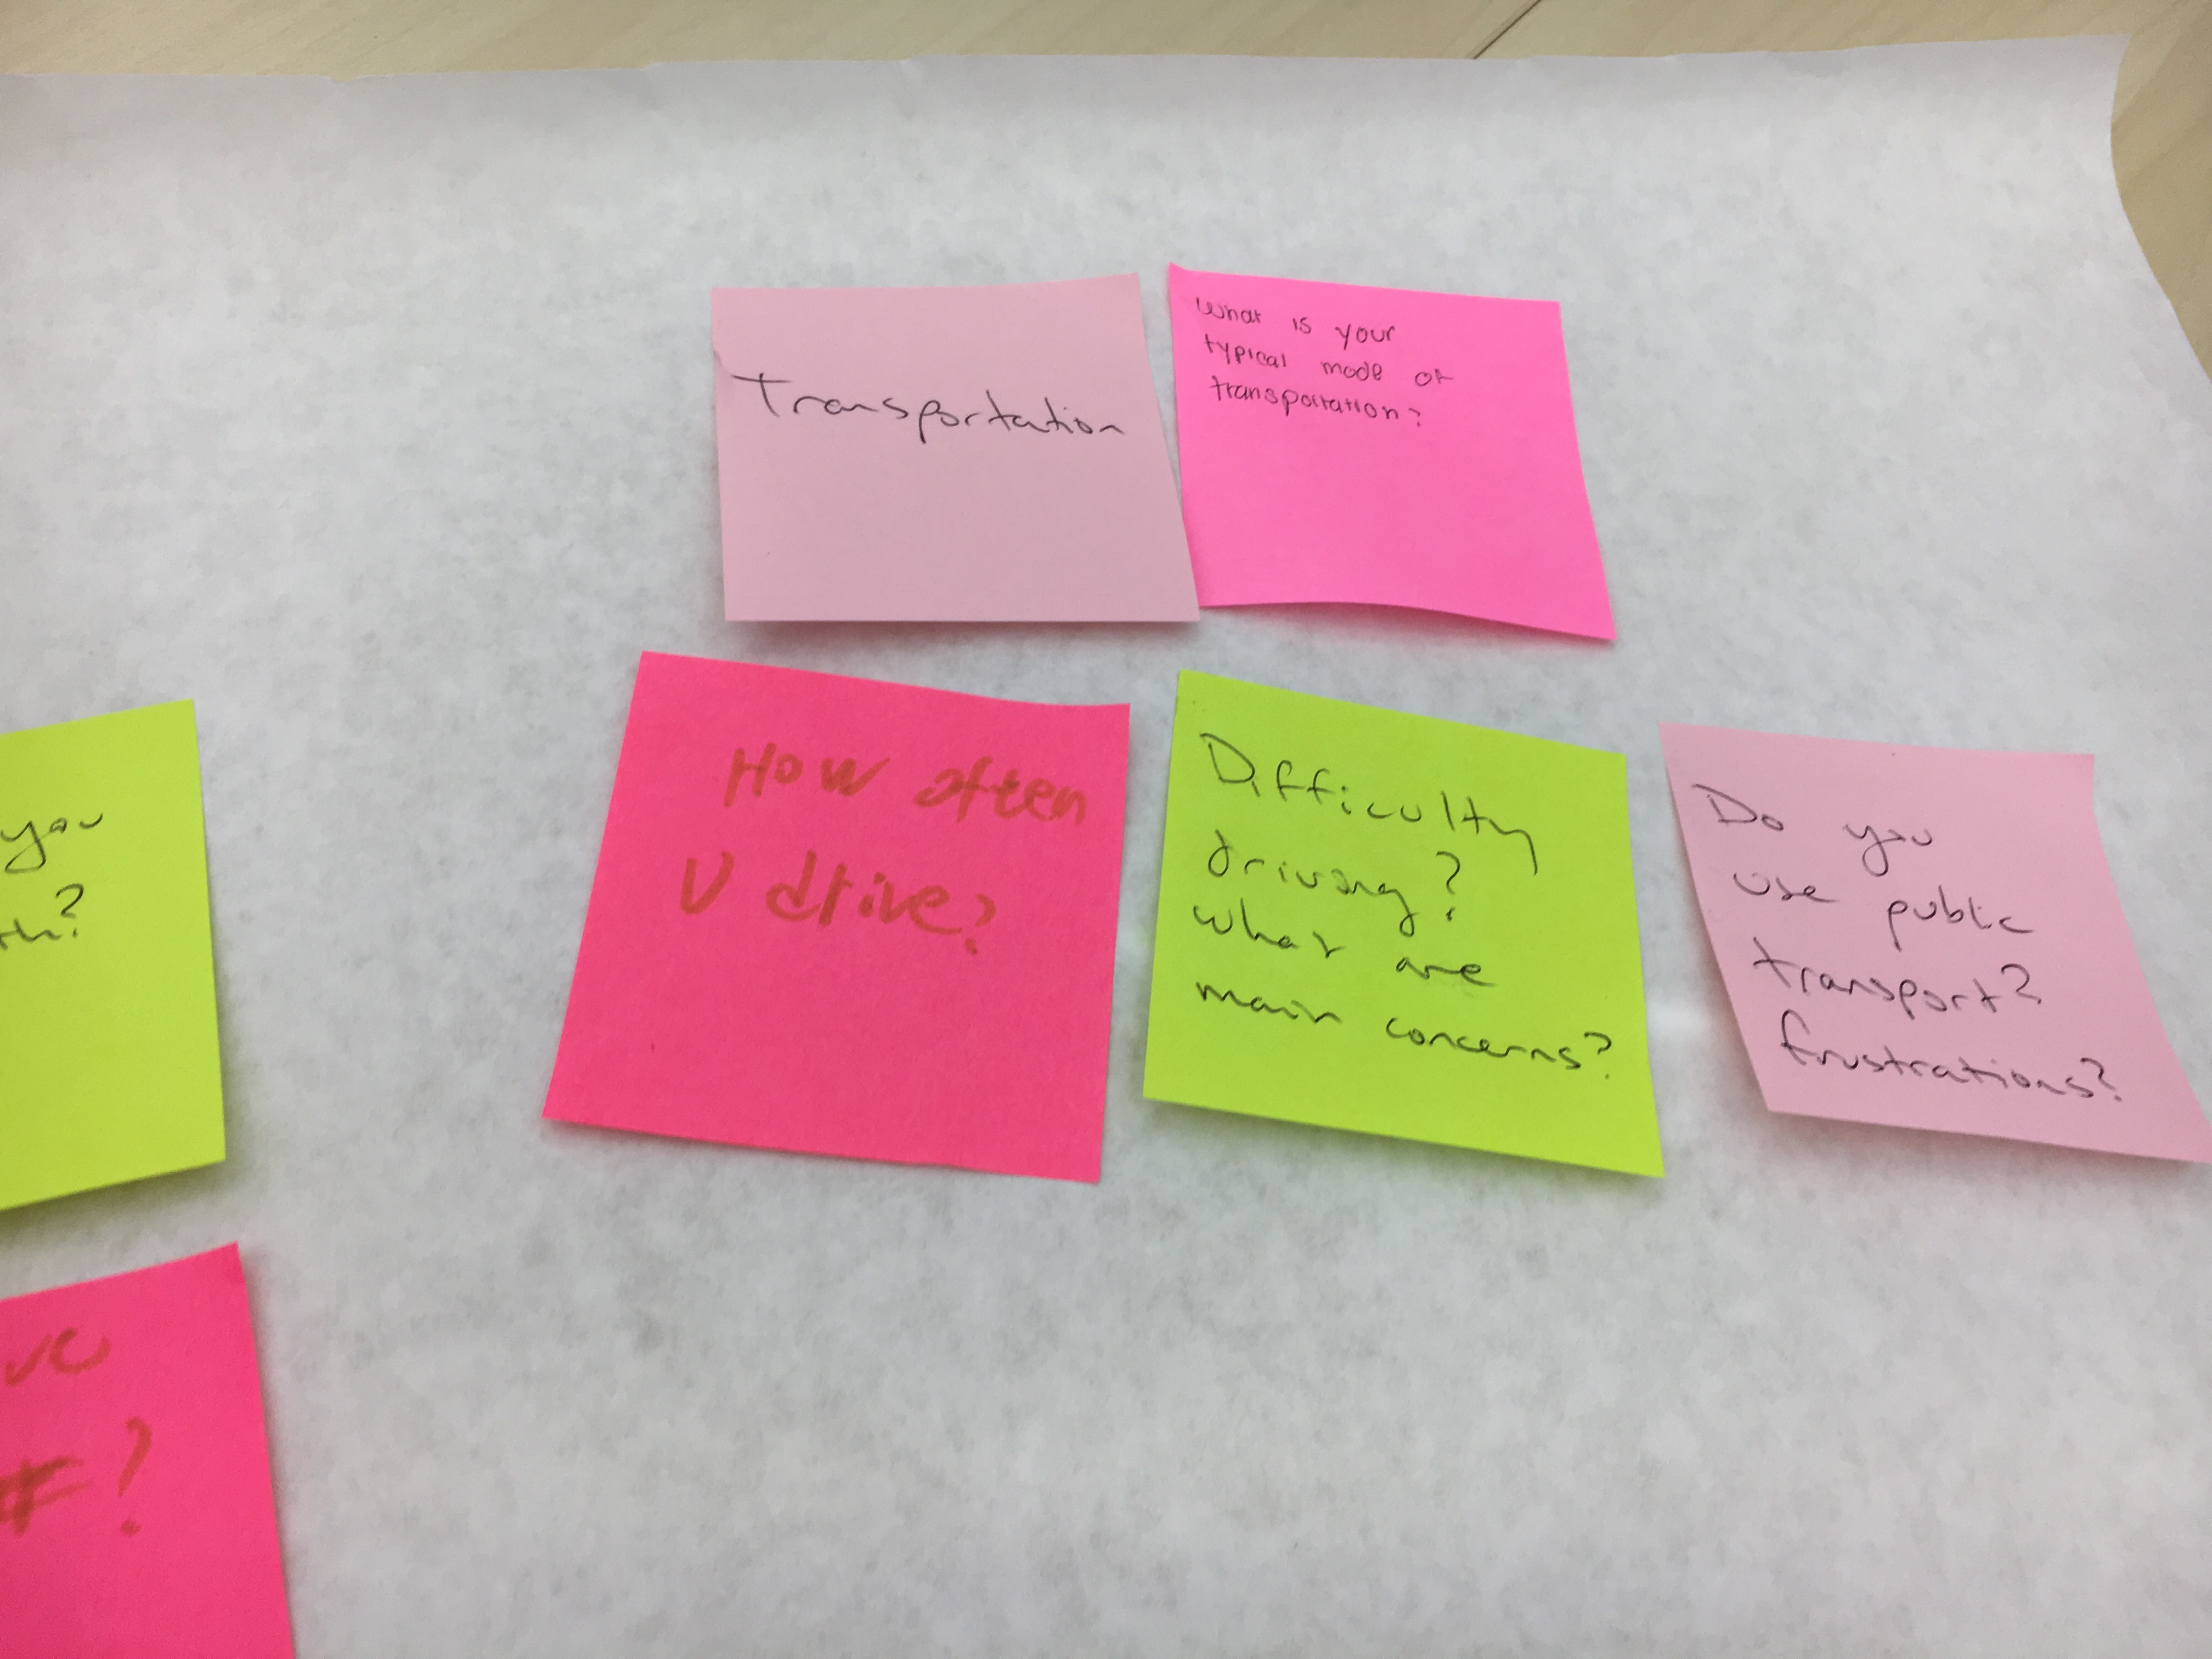 Transportation
What is your
typical mode of
transportation?
How often
U drive?
Difficulty
driving?
what are
main concerns?
Do you
use public
transport?
frustrations?
you